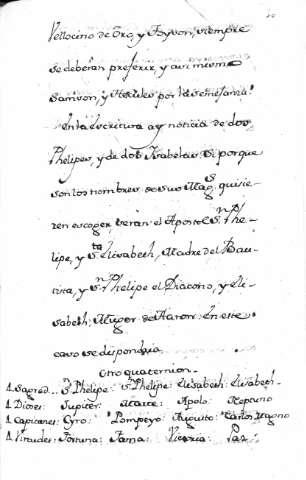 Vellocino de Oro, y Jayson, siempre
se deberan preferir, y asi mismo
Sanson, y Hercules por la semejansa.
En la Escritura ay noticia de dos
Phelipes, y de dos Isabelas. Si porque
son los nombres de sus Mag.s quisie-
ren escoger, seran el Apostol S.n Phe-
lipe, y S.ta Elisabeth, Madre del Bau-
tista, y S.n Phelipe el Diacono, y Eli-
sabeth, Muger de Aaron: En este
caso se dispondria.
Otro quaternion.
1. Sagrad... S. Phelipe: S. Phelipe: Elisabeth: Elisabeth.
1. Dioses: Jupiter: Marte: Apolo: Neptuno
1. Capitanes: Cyro: Pompeyo: Augusto: Carlos Magno
1. Virtudes: Fortuna: Fama: Victoria: Paz.